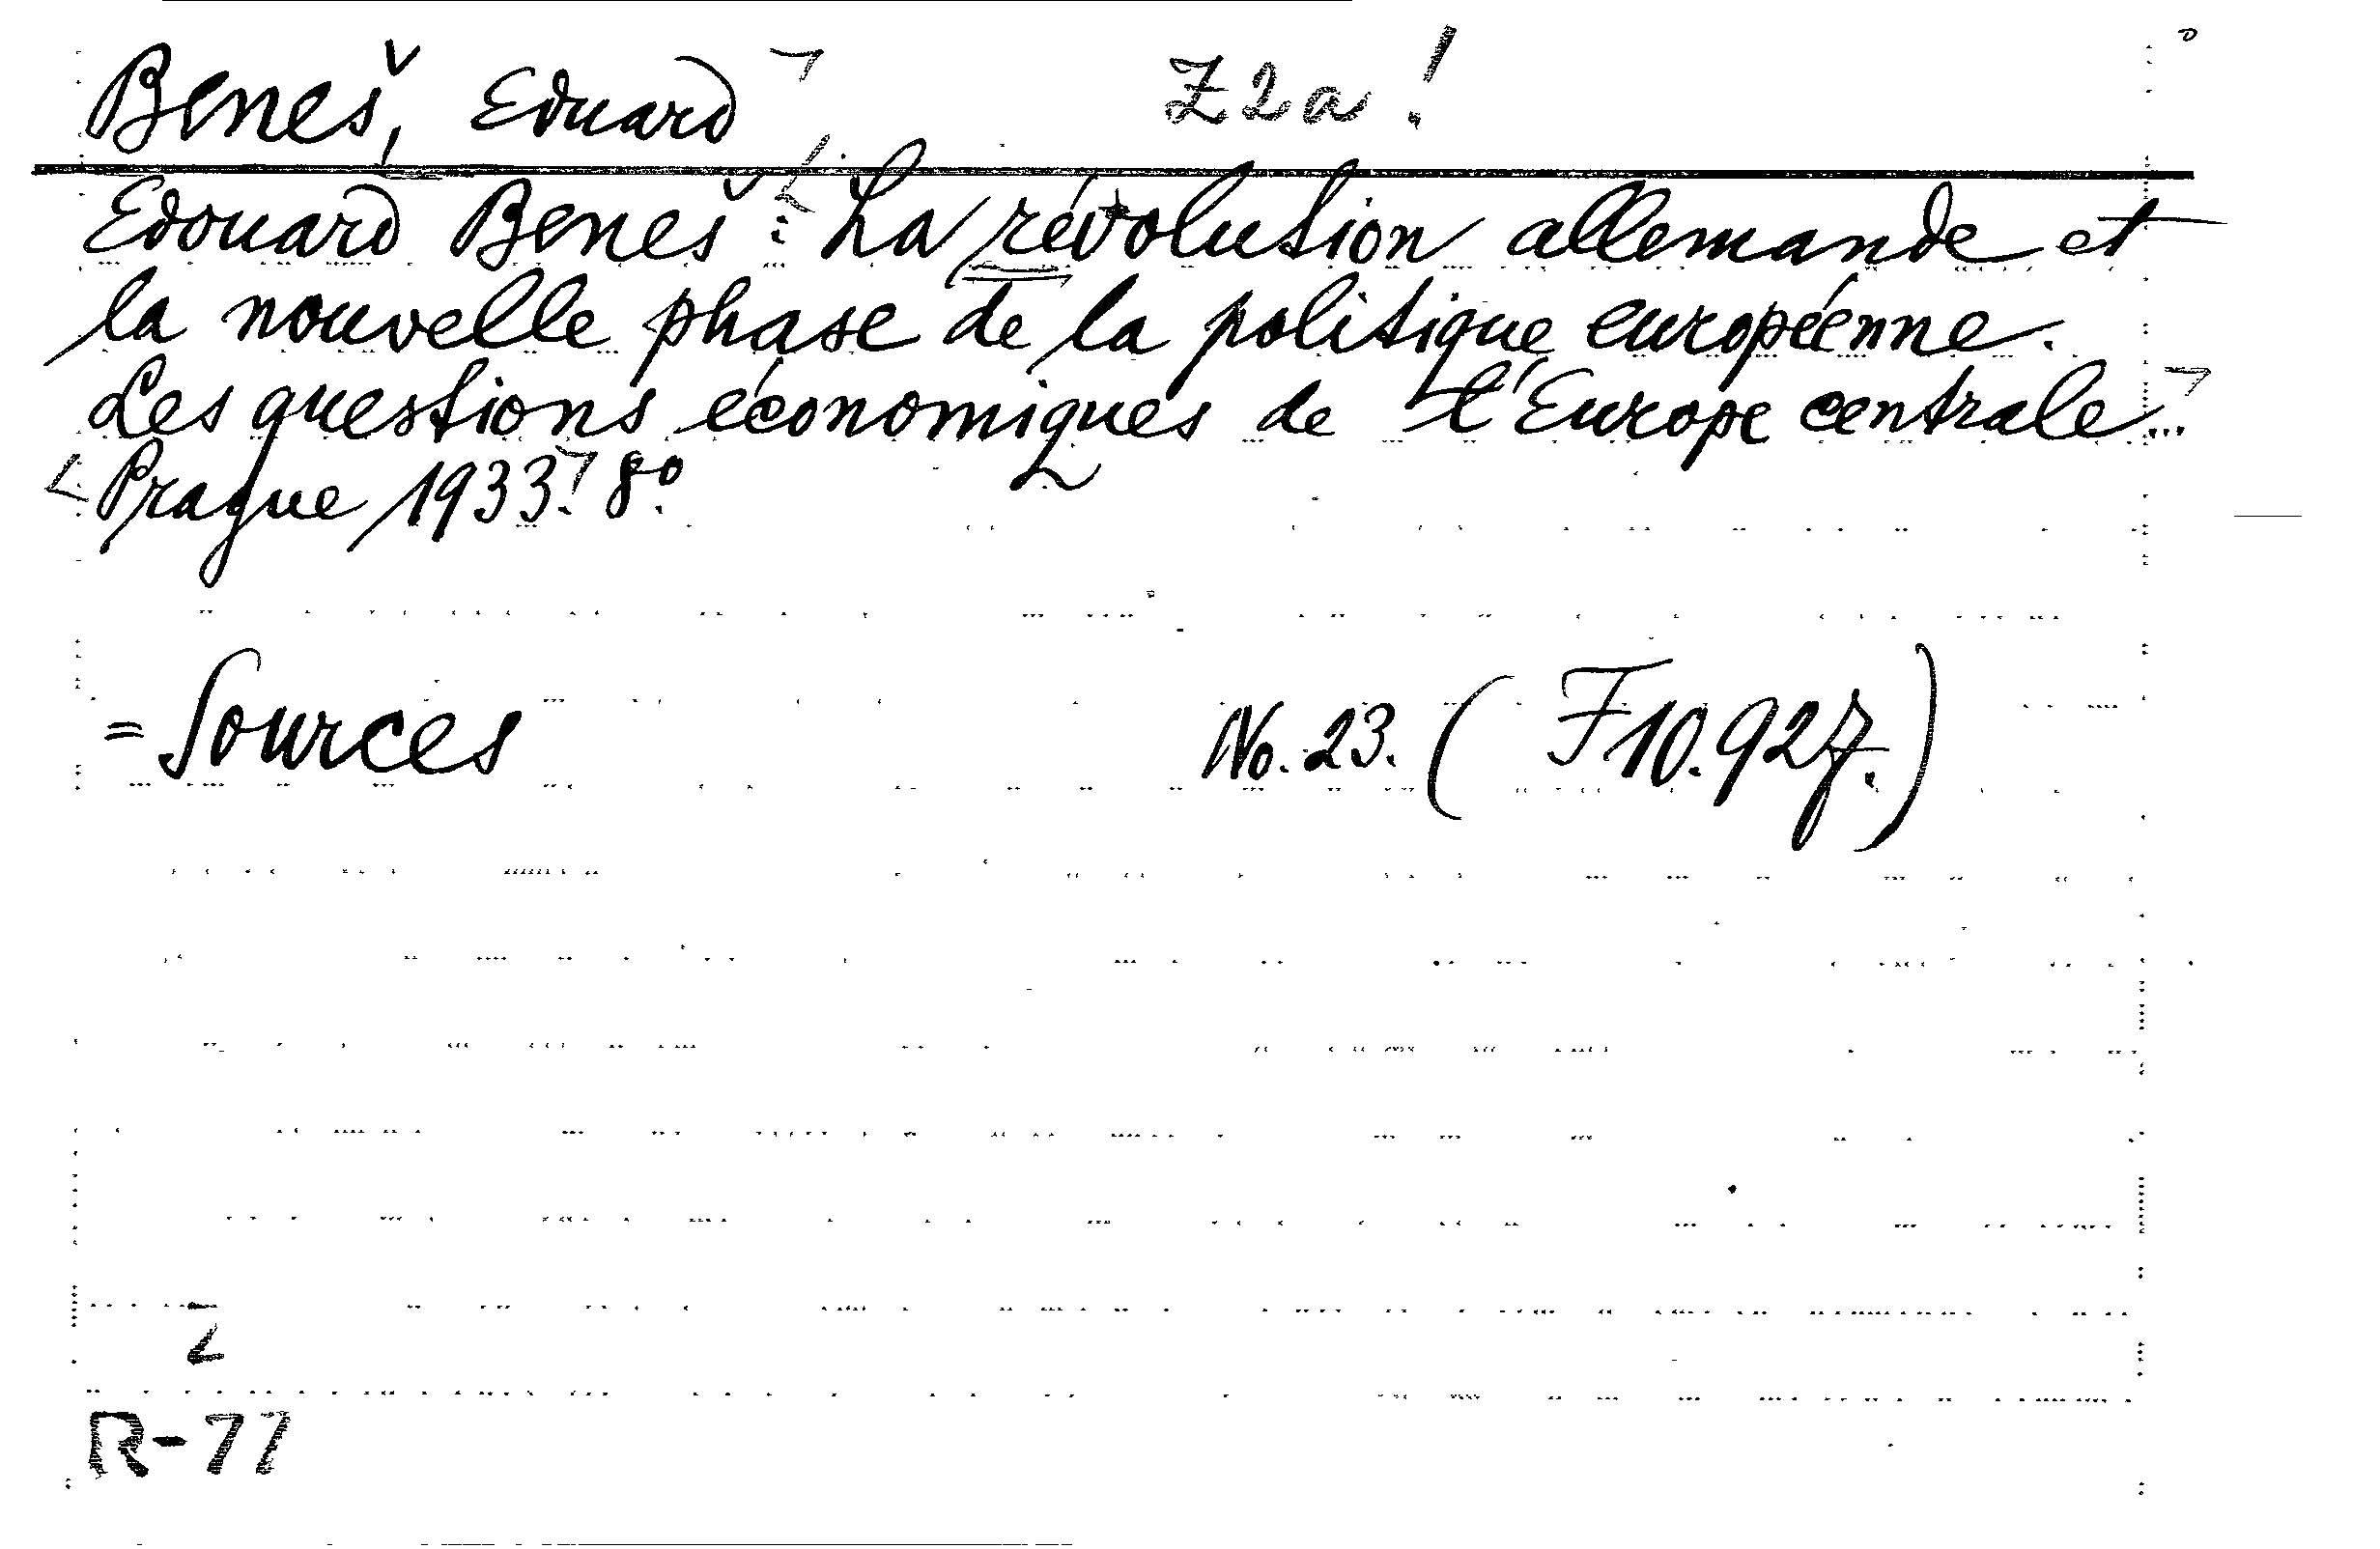 Beneš, Eduard Z2a!
Edouard Beneš: La révolution allemande et
la nouvelle phase de la politique européenne.
Les questions économiques de l'Europe centrale...
Prague 1933. 8º.
= Sources No. 23. (F10.927.)
R-77